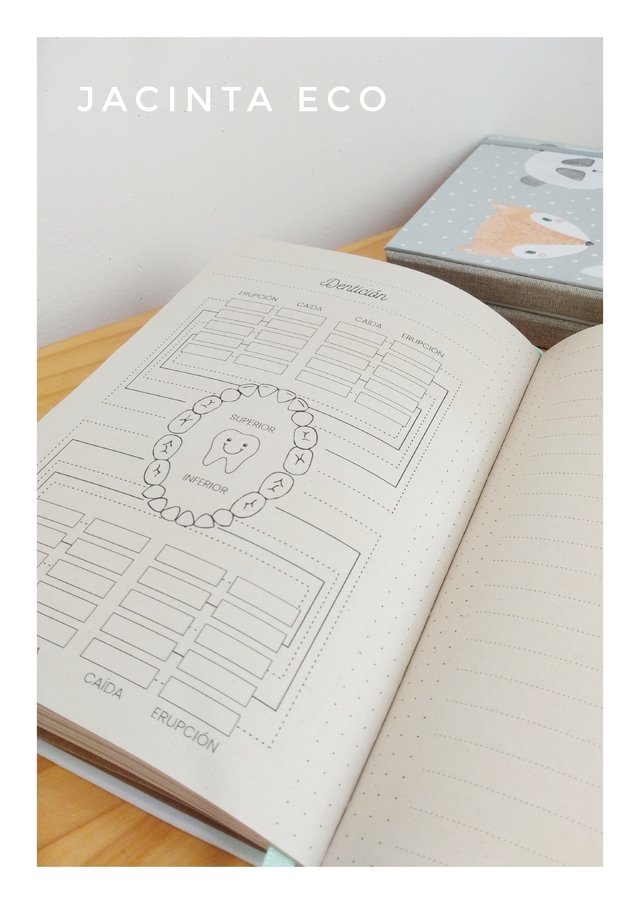 JACINTA ECO
Dentición
ERUPCIÓN CAÍDA CAÍDA ERUPCIÓN
SUPERIOR
INFERIOR
CAÍDA
ERUPCIÓN